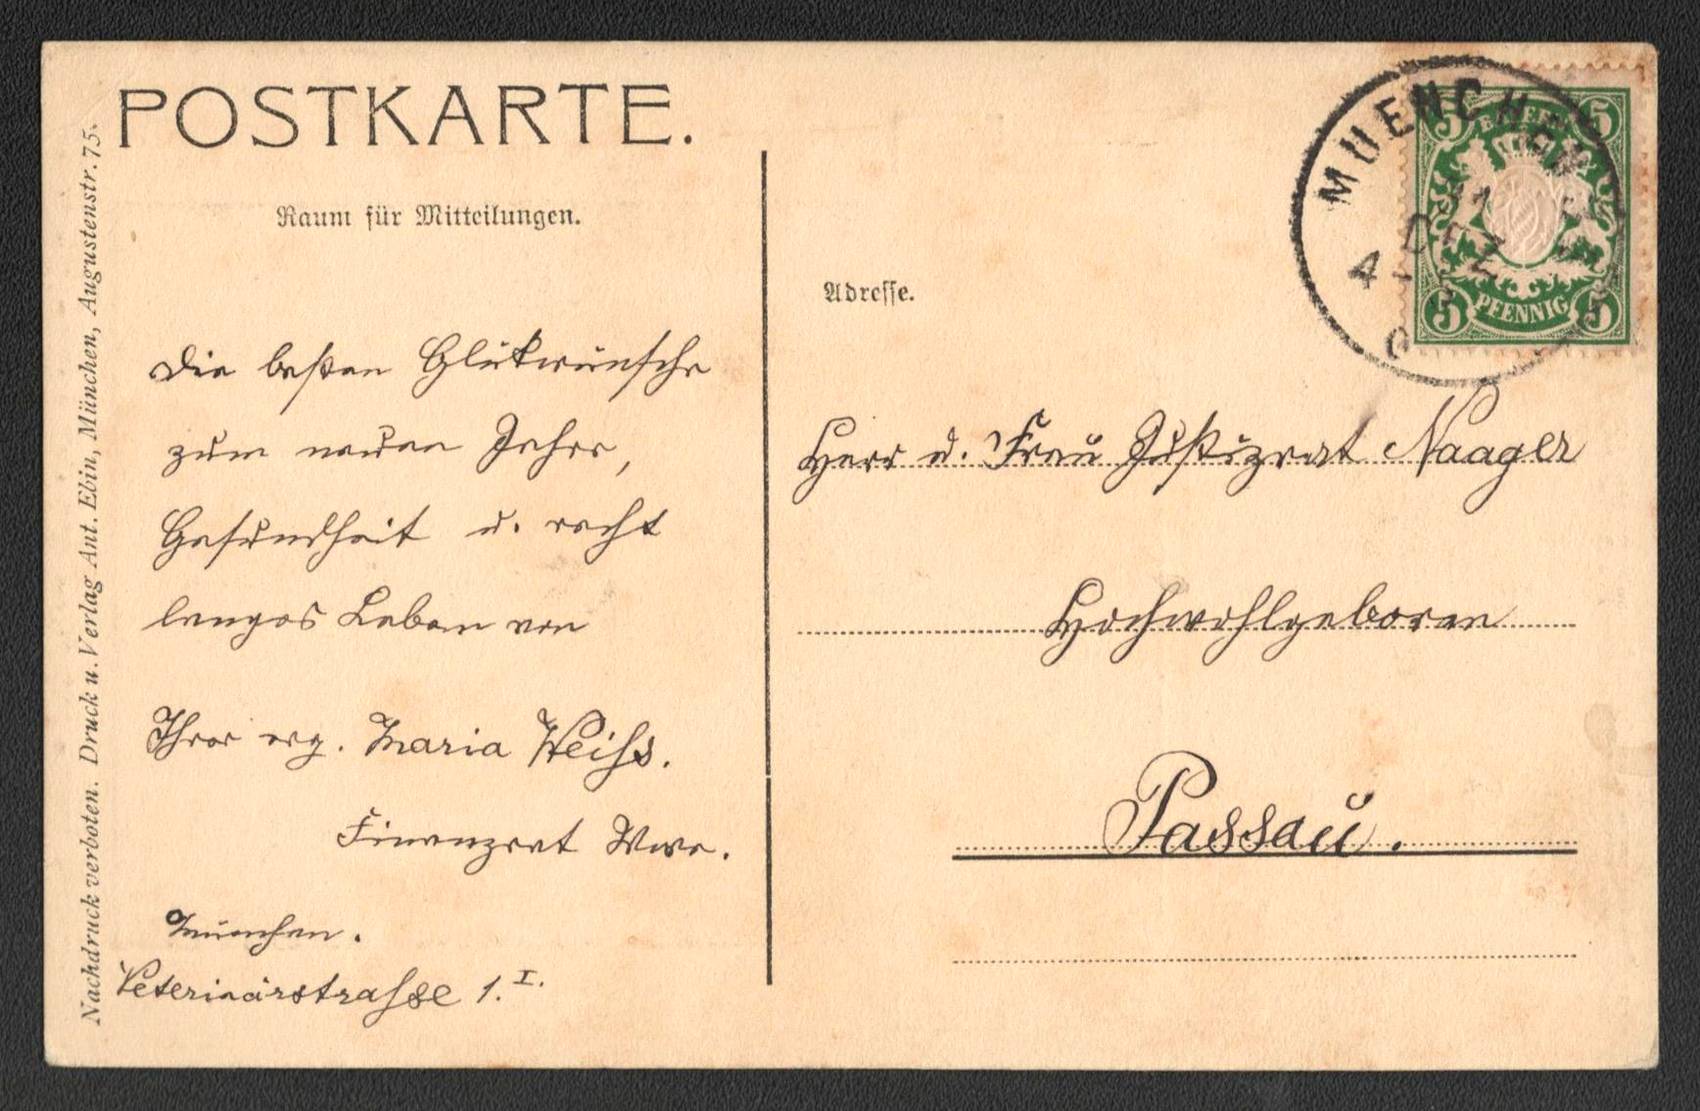 POSTKARTE.
Raum für Mitteilungen.
Nachdruck verboten. Druck u. Verlag Ant. Ebin, München, Augustenstr. 75.
Die besten Glükwünsche
zum neuen Jahre,
Gesundheit u. recht
langes Leben von
Ihrer erg. Maria Weihs.
Finanzrat Wwe.
München.
Veterinärstrasse 1. I.
MUENCHEN
DEZ
4
BAYERN
5 5
5 5
PFENNIG
Adresse.
Herr u. Frau Justizrat Naager
Hochwohlgeboren
Passau.